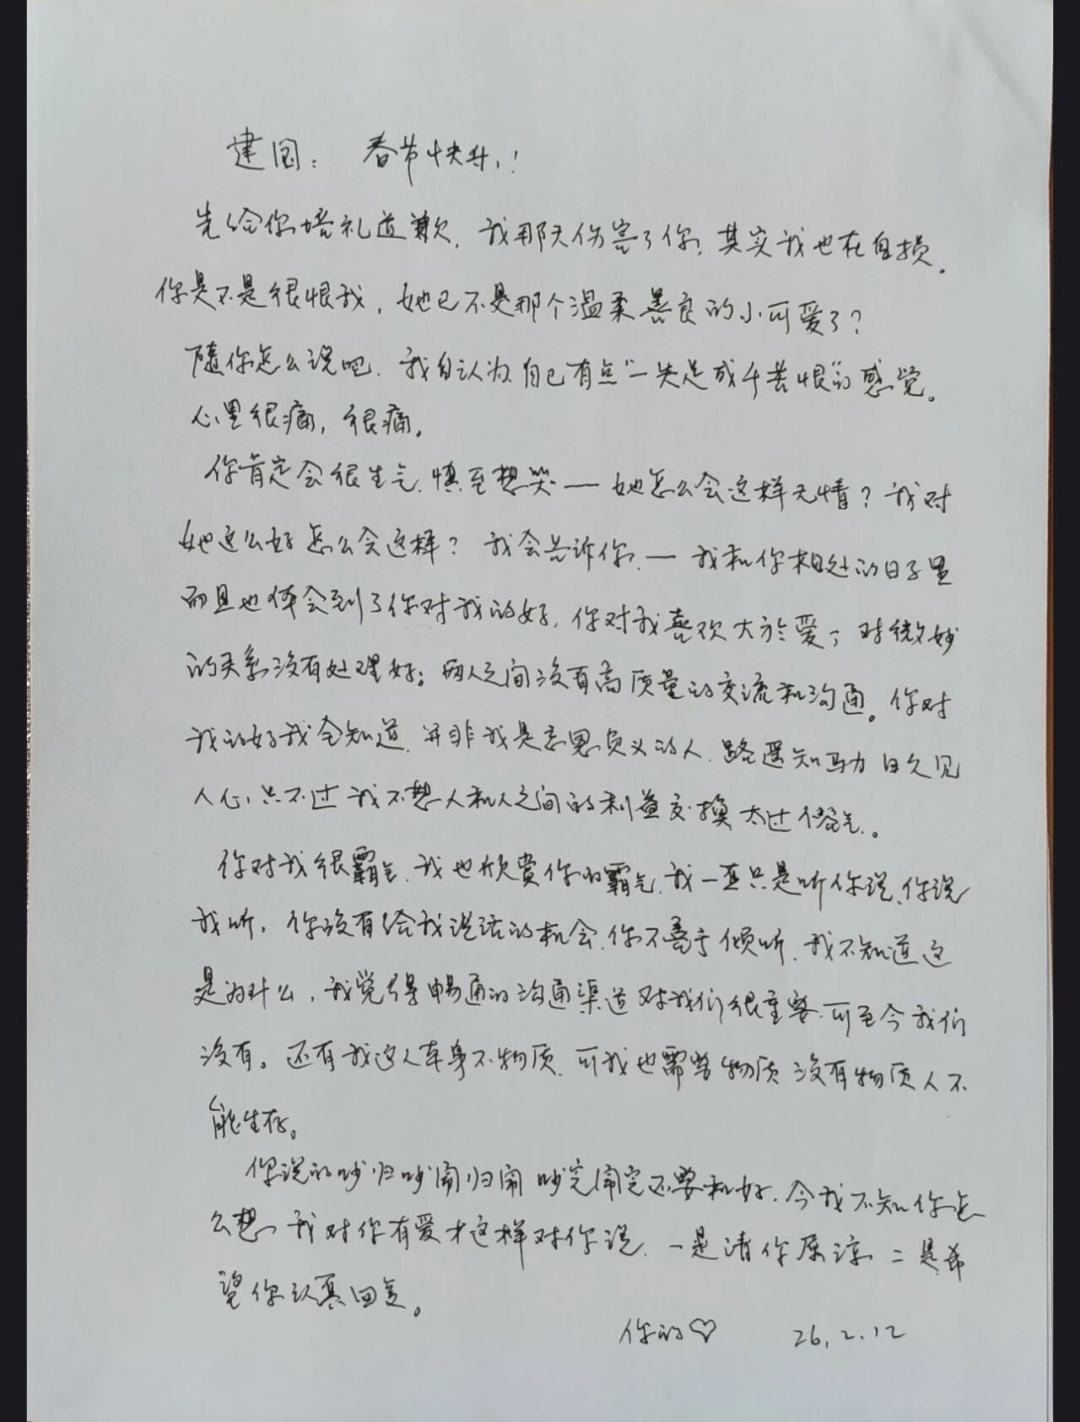 建国：春节快乐！
先给你培礼道歉，我那天伤害了你，其实我也在自损。
你是不是很恨我，她已不是那个温柔善良的小可爱了？
随你怎么说吧，我自认为自己有点“一失足成千苦恨”的感觉。
心里很痛，很痛。
你肯定会很生气，慎至想哭——她怎么会这样无情？我对
她这么好怎么会这样？我会告诉你，——我和你相处的日子里
而且也体会到了你对我的好，你对我喜欢大於爱，对微妙
的关系没有处理好；两人之间没有高质量的交流和沟通。你对
我的好我全知道，并非我是忘恩负义的人，路遥知马力日久见
人心，只不过我不想人和人之间的利益交换太过俗气。
你对我很霸气，我也欣赏你的霸气，我一直只是听你说，你说
我听，你没有给我说话的机会，你不善于倾听，我不知道这
是为什么，我觉得畅通的沟通渠道对我们很重要，可至今我们
没有。还有我这人本身不物质，可我也需要物质没有物质人不
能生存。
你说的吵归吵闹归闹吵完闹完还要和好，今我不知你怎
么想，我对你有爱才这样对你说，一是请你原谅二是希
望你认真回复。
你的♡ 26.2.12